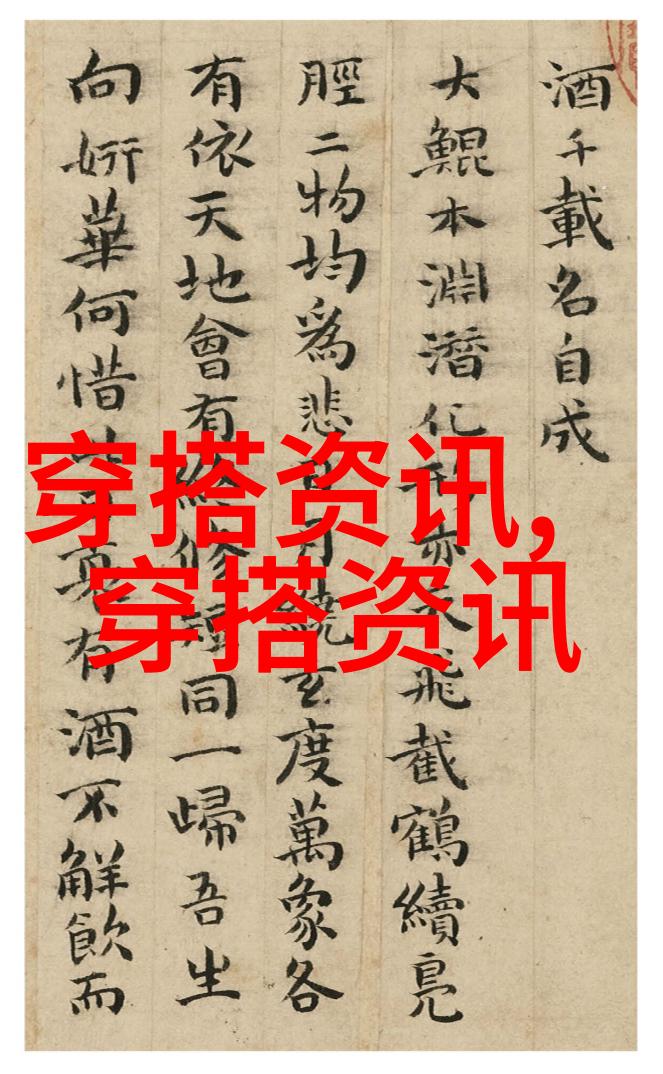 酒千載名自成
大鯤本淵潛化亦飛截鶴續鳧
脛二物均爲悲月繞玄度萬象各
有依天地會有修短同一歸吾生
向妍華何惜有酒不解飲而
穿搭资讯,
穿搭资讯